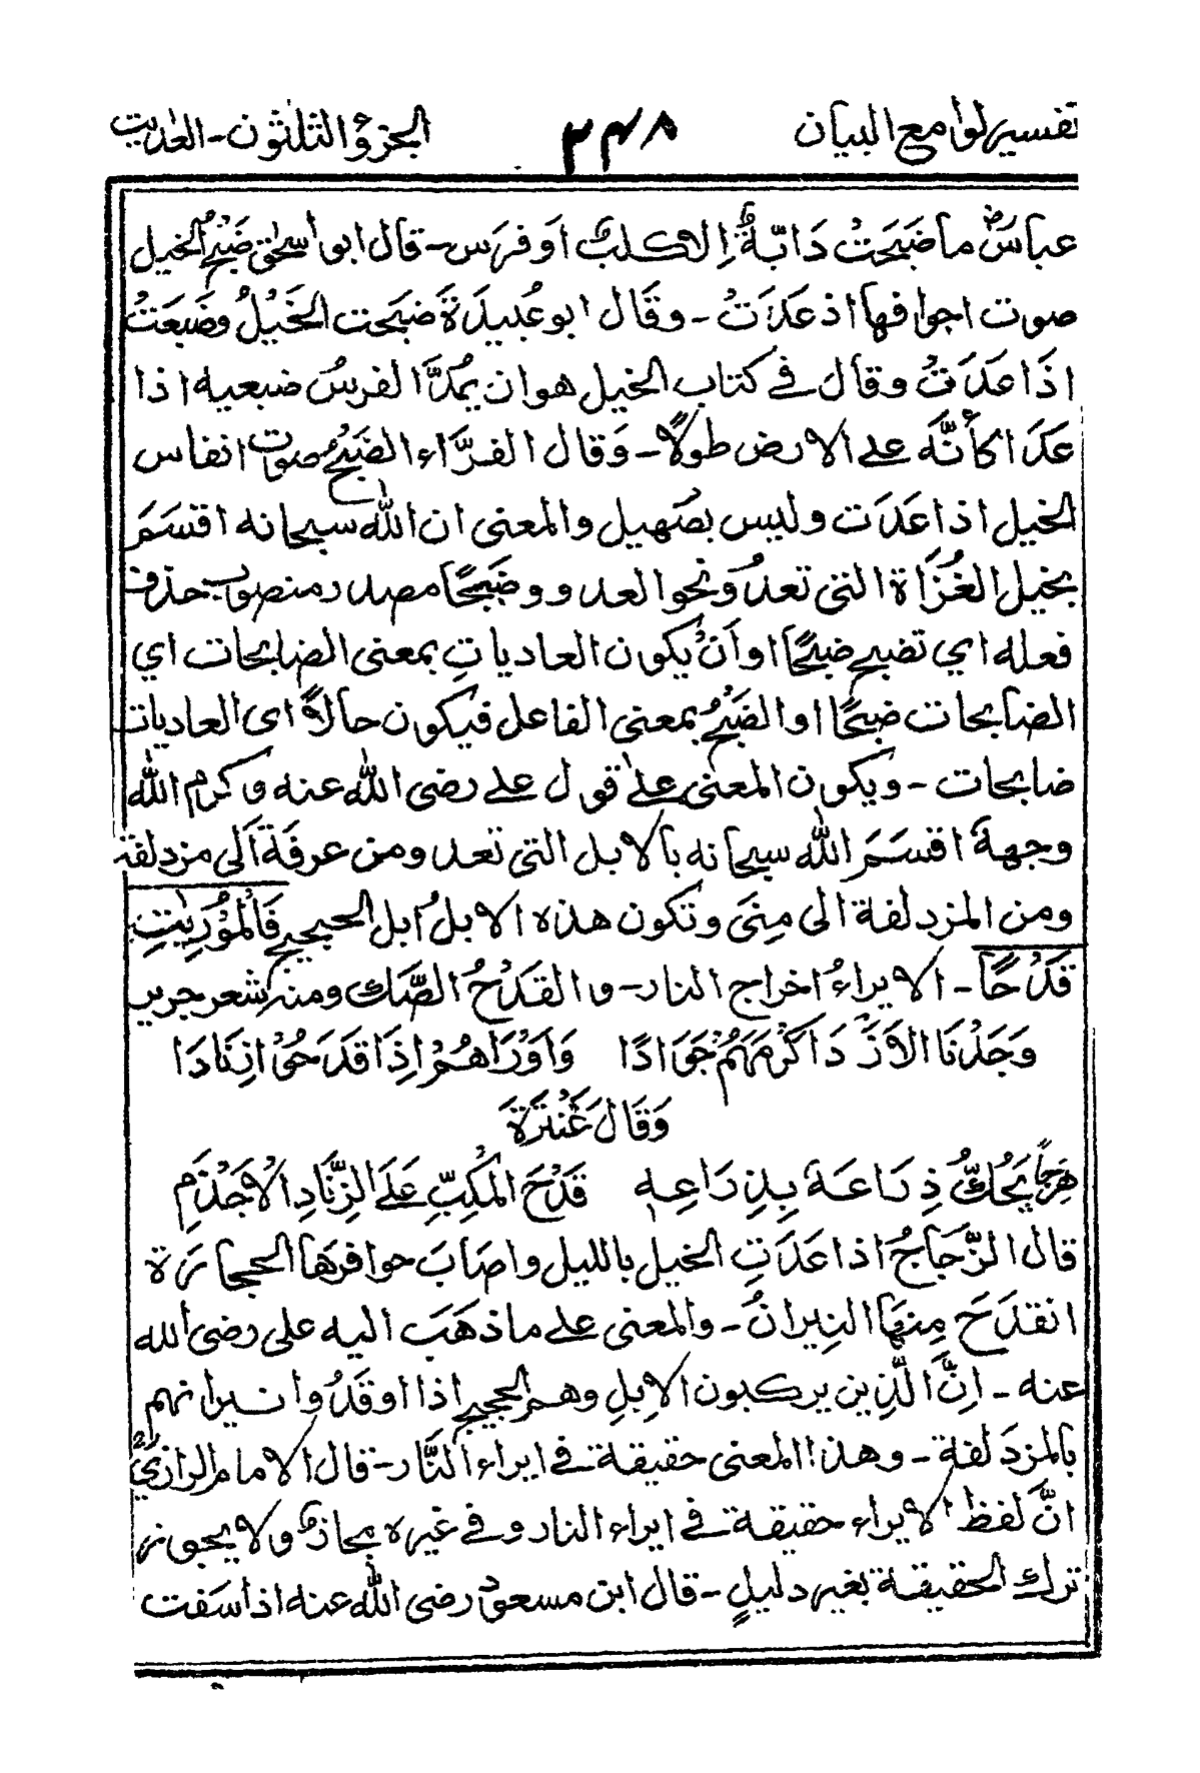 تفسير لوامع البيان ٢٤٨ الجزؤ الثلٰثون - العٰديٰت
عباسؓ ما ضَبَحَتْ دَابّةٌ اِلا كلبٌ او فرَس - قال ابو اسحٰق ضَبْحُ الخيل
صوت اجوافها اذ عَدَتْ - وقَال ابو عُبيدَةَ ضبَحت الخَيْلُ وضَبَعَتْ
اذَا عَدَتْ وقال في كتاب الخيل هو ان يمُدَّ الفرسُ ضبعيه اذا
عدَا كأنَّه على الارض طولًا - وَقال الفرَّاء الضَبْحُ صوت انفاس
الخيل اذا عَدَت وليس بصَهيل والمعنى ان الله سبحانه اقسَمَ
بخيل الغُزَاة التى تعدُو نحو العدو وضَبْحًا مصدر منصوب حذف
فعله اي تضبح ضبحًا او اَنْ يكون العادياتِ بمعنى الضابحات اي
الضابحات ضبحًا او الضَبْحُ بمعنى الفاعل فيكون حالاً اى العاديات
ضابحات - ويكون المعنى علىٰ قول على رضى الله عنه وكرم الله
وجههٗ اقسَمَ الله سبحانه بالابل التى تعدو من عرفَة اَلى مزدلفة
ومن المزدلفة الى مِنىَ وتكون هذه الابلُ ابل الحجيج فَالْمُوْرِيٰتِ
قَدْحًا - الايراءُ اخراج النار - والقَدْحُ الصَّك ومنه شعر جرير
وَجَدْنَا الاَزْدَ اَكْرَمَهُمْ جَوَادًا وَاَوْرَاهُمْ اِذَا قَدَحُوْا زِنَادَا
وَقَال عَنْتَرَةَ
هَزِجًا يَحُكُّ ذِرَاعَهٗ بِذِرَاعِهٖ قَدْحَ الْمُكِبِّ عَلَى الزِّنَادِ الْاَجْذَمِ
قال الزّجَاجُ اذا عَدَتِ الخيل بالليل واصَابَ حوافرهَا الحجارَة
انقدَحَ مِنهَا النِيرانُ - والمعنى على ما ذهَبَ اليه على رضى الله
عنه - اِنَّ الَّذِين يركبون الاِبلِ وهم الحجيج اذا اوقَدُوا نيرانهم
بالمزدَلفة - وهذا المعنى حقيقة في ايراء النَّار - قال الامام الرازيُّ
انَّ لَفظ الايراء حقيقة في ايراء النار وفي غيره مجازٌ ولا يجوز
ترك الحقيقة بغير دليلٍ - قال ابن مسعودؓ رضى الله عنه اذا سَفت